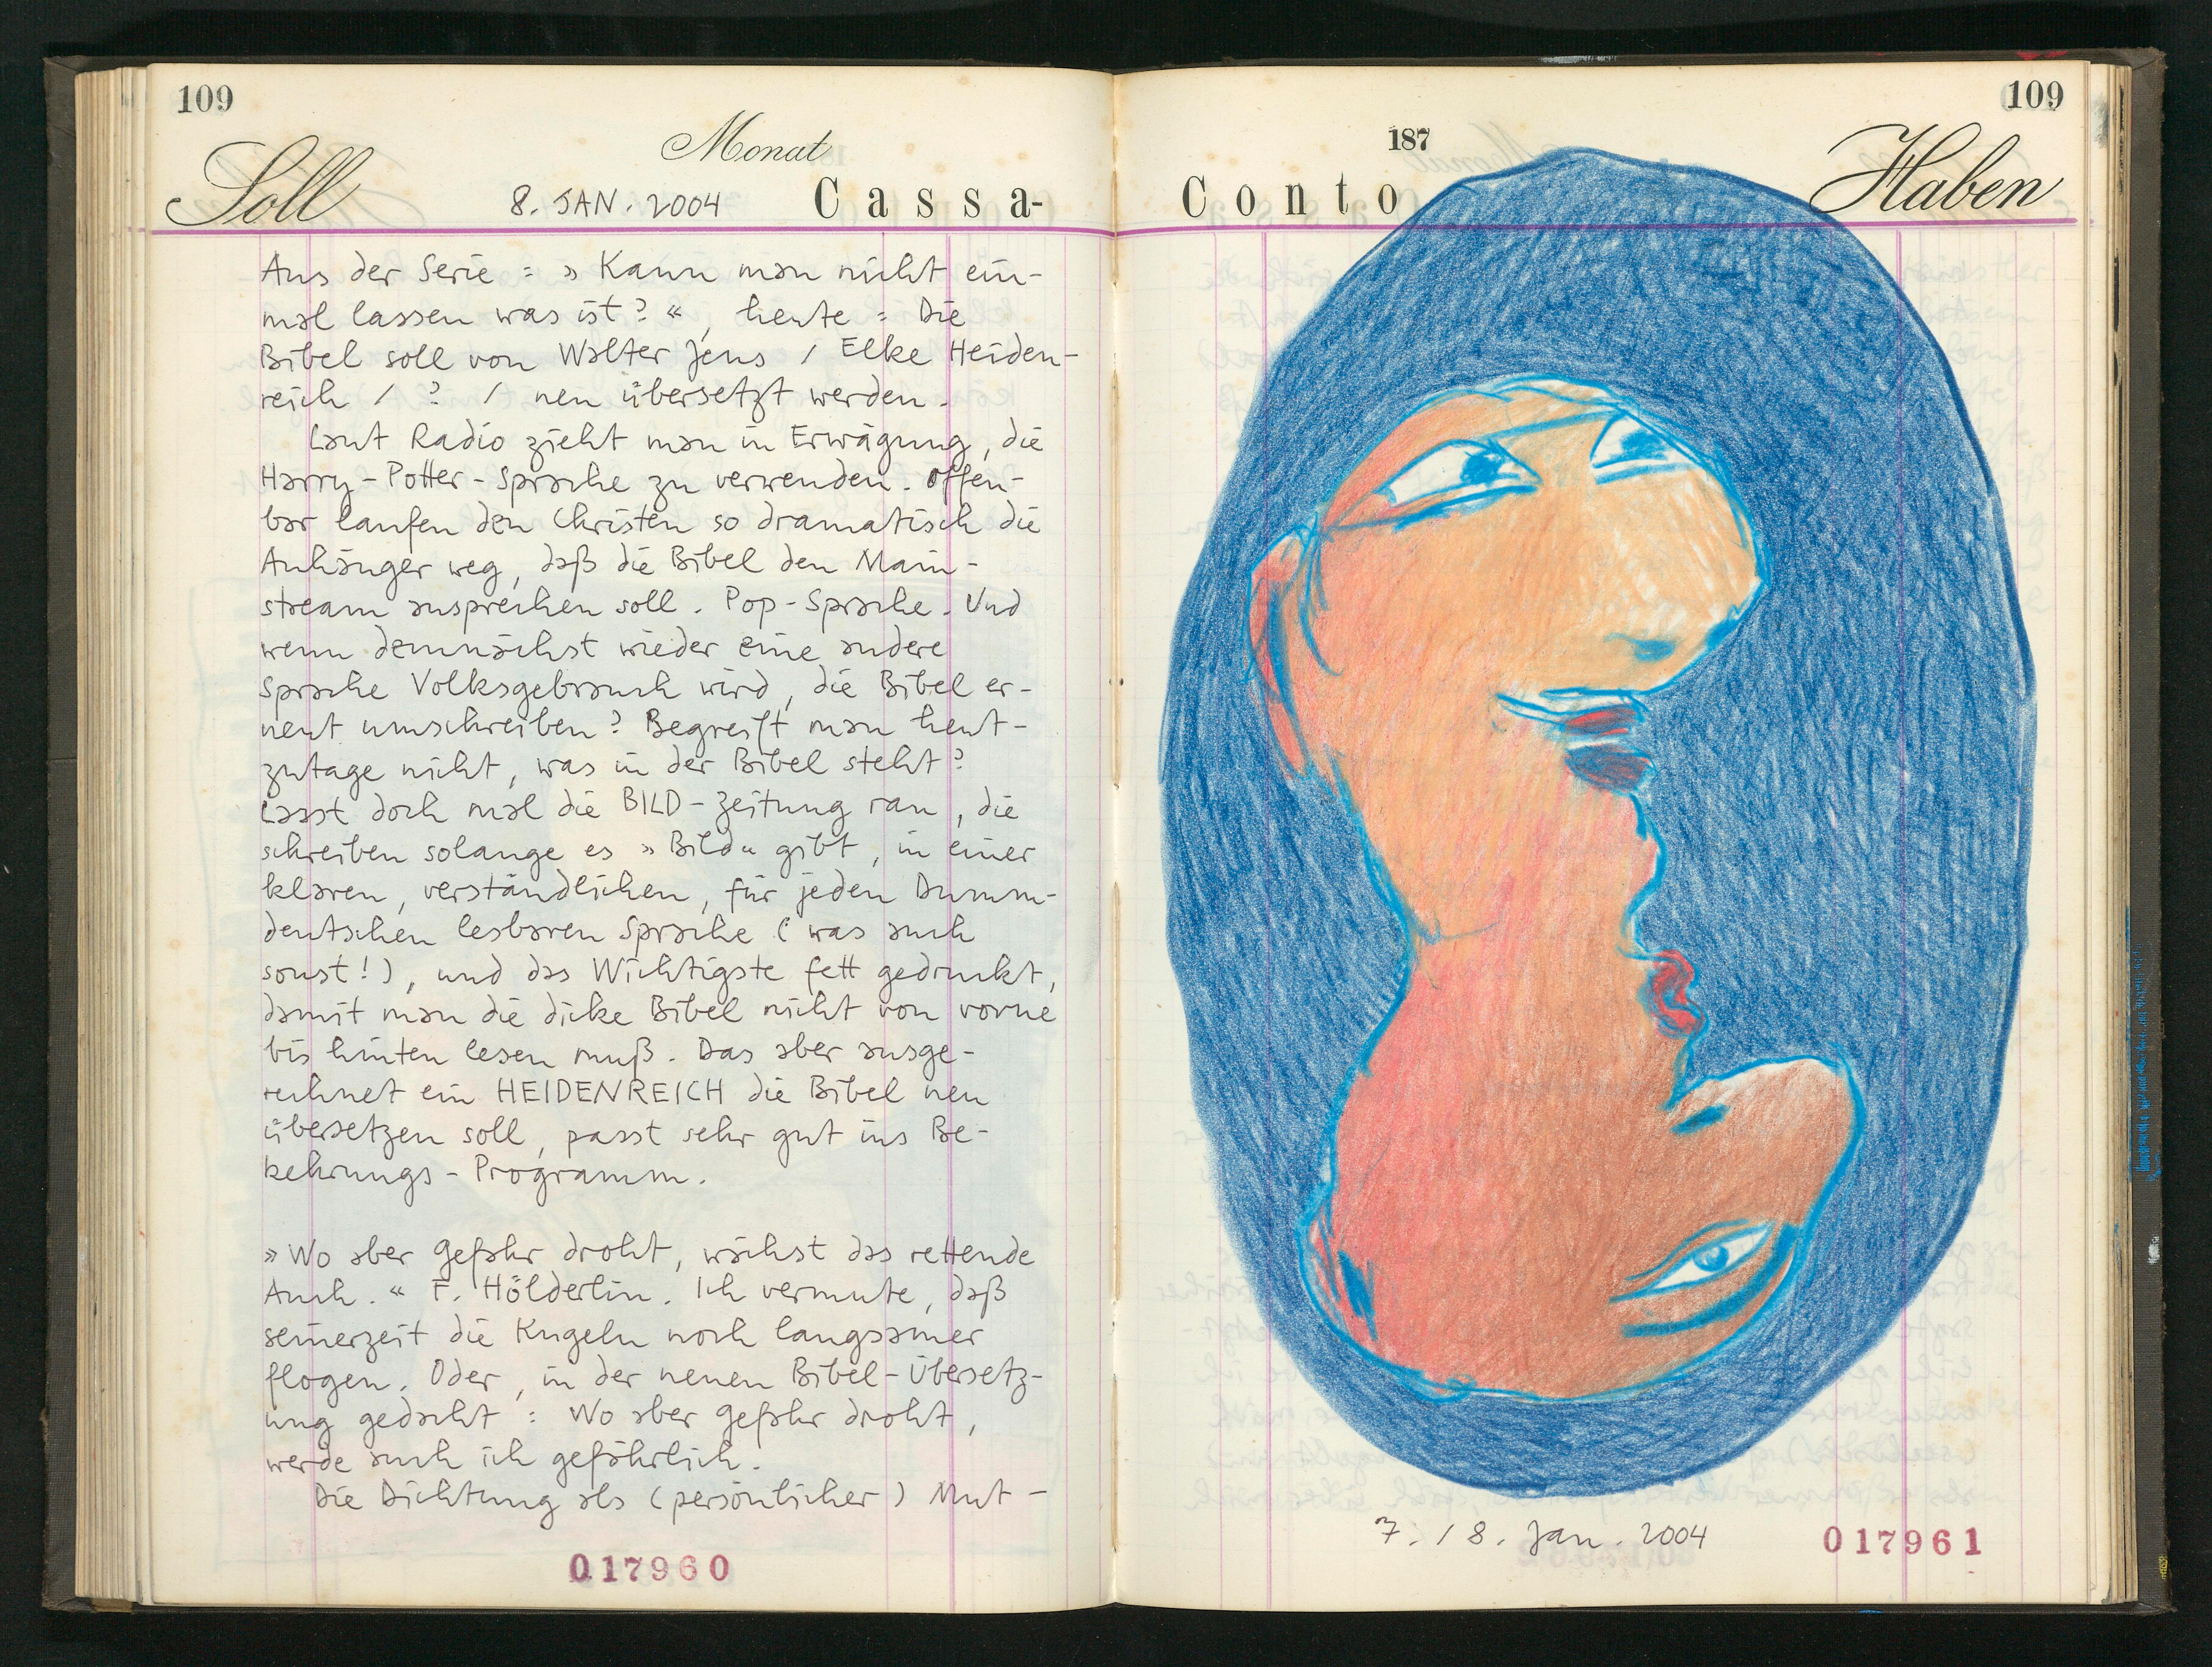 109
Soll
Monat
8. JAN. 2004
Cassa-
Aus der Serie : » Kann man nicht ein-
mal lassen was ist? «, heute : Die
Bibel soll von Walter Jens / Elke Heiden-
reich / ? / neu übersetzt werden.
Laut Radio zieht man in Erwägung, die
Harry-Potter-Sprache zu verwenden. Offen-
bar laufen den Christen so dramatisch die
Anhänger weg, daß die Bibel den Main-
stream ansprechen soll. Pop-Sprache. Und
wenn demnächst wieder eine andere
Sprache Volksgebrauch wird, die Bibel er-
neut umschreiben? Begreift man heut-
zutage nicht, was in der Bibel steht?
Lasst doch mal die BILD-Zeitung ran, die
schreiben solange es »Bild« gibt, in einer
klaren, verständlichen, für jeden Dumm-
deutschen lesbaren Sprache (was auch
sonst!), und das Wichtigste fett gedruckt,
damit man die dicke Bibel nicht von vorne
bis hinten lesen muß. Das aber ausge-
rechnet ein HEIDENREICH die Bibel neu
übersetzen soll, passt sehr gut ins Be-
kehrungs-Programm.
»Wo aber Gefahr droht, wächst das rettende
Auch.« F. Hölderlin. Ich vermute, daß
seinerzeit die Kugeln noch langsamer
flogen. Oder, in der neuen Bibel-Übersetz-
ung gedacht : Wo aber Gefahr droht,
werde auch ich gefährlich.
Die Dichtung als (persönlicher) Mut-
017960
109
187
Conto
Haben
7. / 8. Jan. 2004
017961